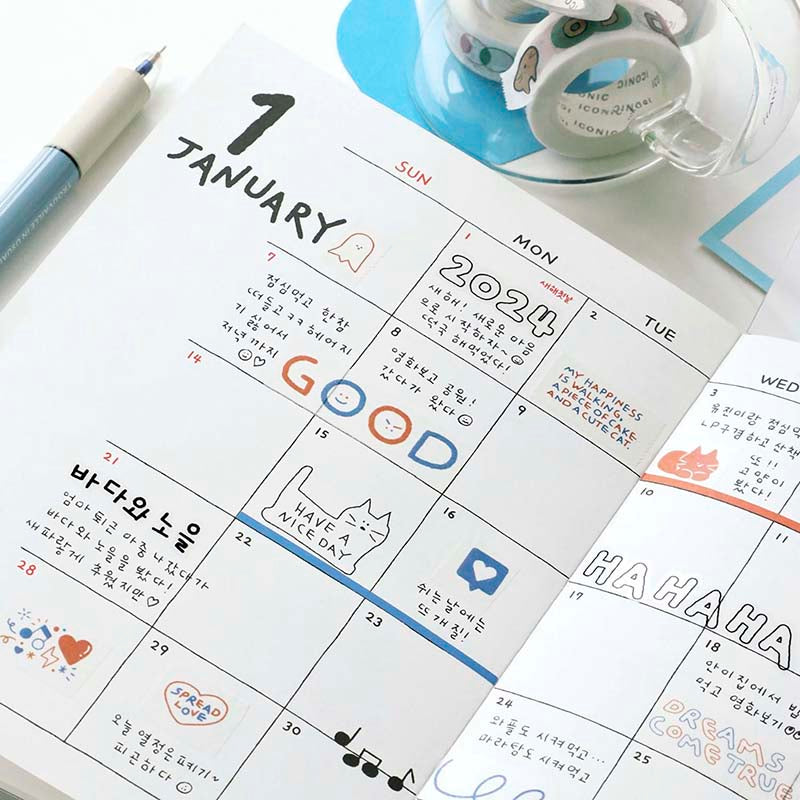 1
JANUARY
SUN
MON
TUE
WED
1
새해첫날
2024
새해! 새로운 마음
으로 시작하자~
떡국 해먹었다!
2
MY HAPPINESS
IS WALKING,
A PIECE OF CAKE
AND A CUTE CAT.
3
유진이랑 점심먹
LP구경하고 산책
또!!
고양이
봤다!
7
점심먹고 한참
떠들고ㅋㅋ 헤어지
기 싫어서
저녁까지
8
영화보고 공원!
갔다가 왔다
GOOD
9
10
11
14
15
HAVE A
NICE DAY
16
쉬는날에는
뜨개질!
HA HA HA
17
18
안이집에서 밥
먹고 영화보기
DREAMS
COME TRUE
21
바다와 노을
엄마 퇴근 마중나갔다가
바다와 노을을 봤다!
새파랗게 추웠지만♡
22
23
24
와플도 시켜먹고...
마라탕도 시켜먹고
25
28
29
SPREAD
LOVE
오늘 열정은 파키기~
피곤하다
30
ICONIC